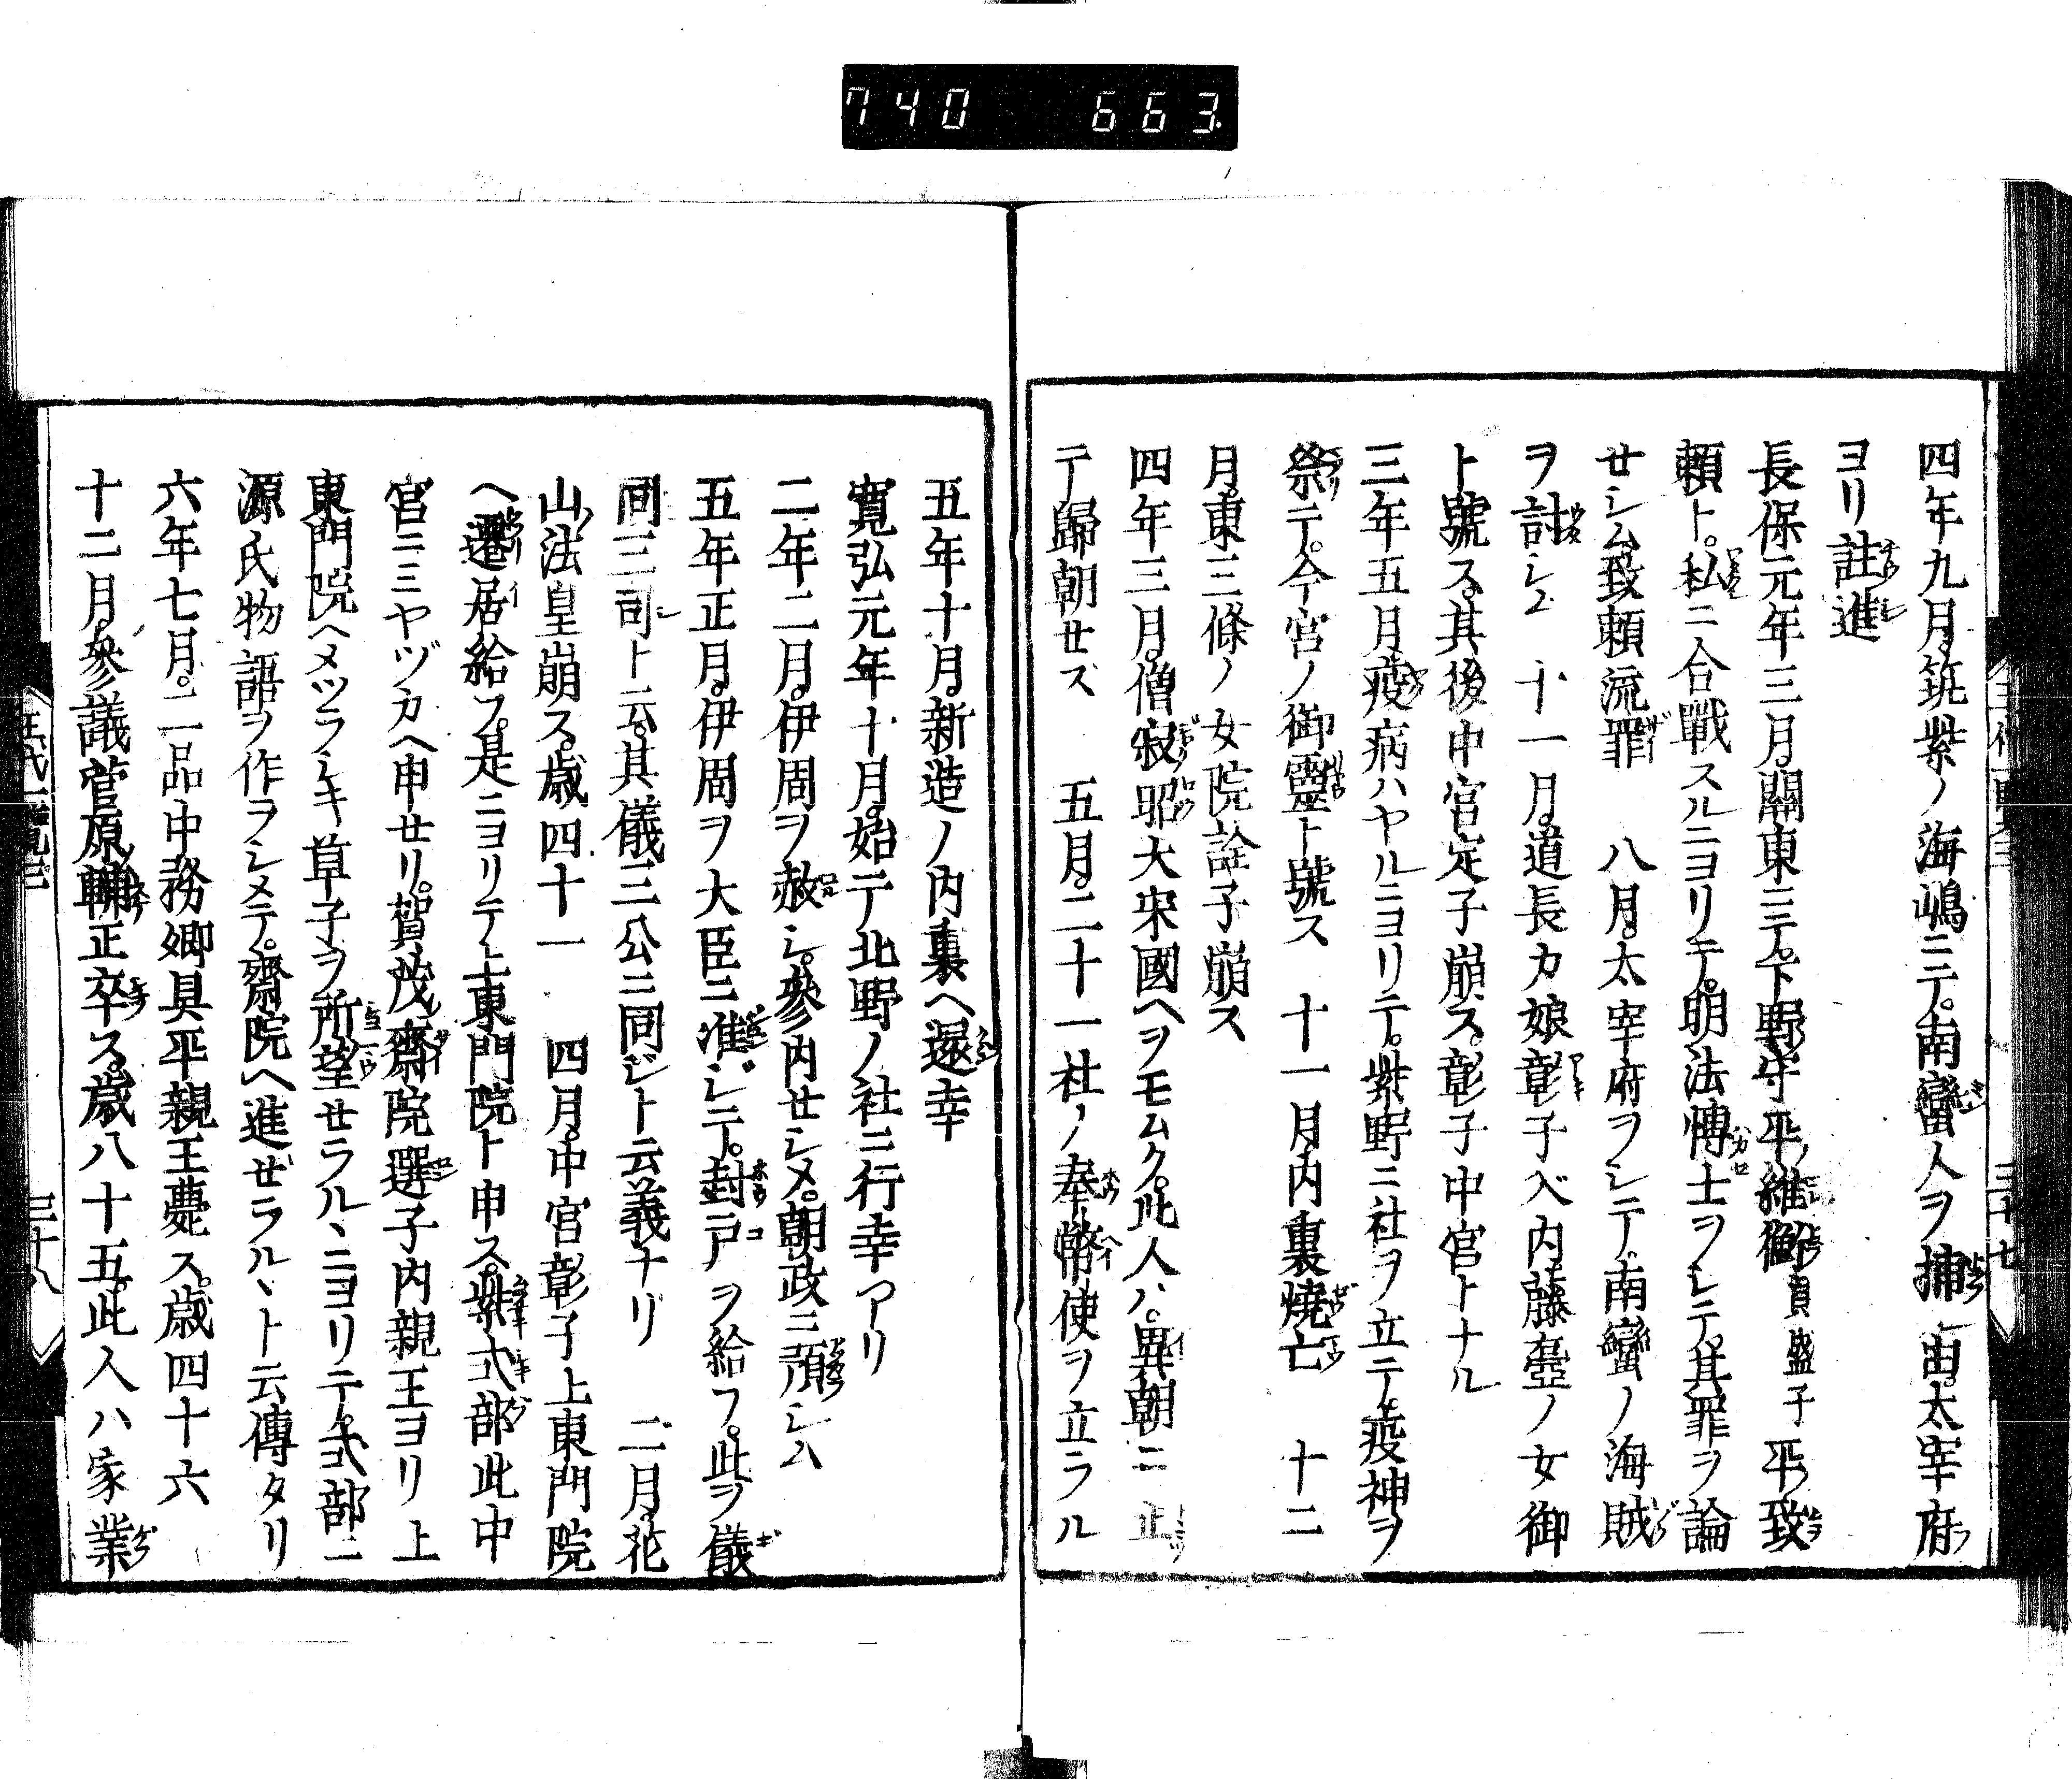 740 663
四年九月。筑紫ノ海嶋ニテ。南蠻人ヲ捕ル由。太宰府
ヨリ註進
長保元年三月。關東ニテ。下野守平維衡貞盛子平致
賴ト。私ニ合戰スルニヨリテ。明法博士ヲシテ。其罪ヲ論
ゼシム致賴流罪　八月。太宰府ヲシテ南蠻ノ海賊
ヲ討シム　十一月。道長カ娘彰子入内藤壺ノ女御
ト號ス。其後中宮定子崩ス。彰子中宮トナル
三年五月。疫病ハヤルニヨリテ。紫野ニ社ヲ立テ。疫神ヲ
祭テ。今宮ノ御靈ト號ス　十一月。内裏燒亡　十二
月。東三條ノ女院詮子崩ス
四年三月。僧寂昭大宋國ヘヲモムク。此人ハ。異朝ニ止
テ歸朝セズ　五月。二十一社ノ奉幣使ヲ立ラル
五年十月。新造ノ内裏ヘ還幸
寛弘元年十月。始テ北野ノ社ニ行幸アリ
二年二月。伊周ヲ赦シ。參内セシメ。朝政ニ預シム
五年正月。伊周ヲ大臣ニ准シテ。封戸ヲ給フ。此ヲ儀
同三司ト云。其儀三公ニ同ジト云義ナリ　二月。花
山法皇崩ス。歳四十一　四月。中宮彰子上東門院
ヘ遷居給フ。是ニヨリテ上東門院ト申ス。紫式部此中
宮ニミヤヅカヘ申セリ。賀茂齋院選子内親王ヨリ上
東門院ヘメヅラシキ草子ヲ所望セラルヽニヨリテ。式部ニ
源氏物語ヲ作ヲシメテ。齋院ヘ進ゼラルヽト云傳タリ
六年七月。二品中務卿具平親王薨ス。歳四十六
十二月。參議菅原輔正卒ス。歳八十五。此人ハ家業
三十七
三十八